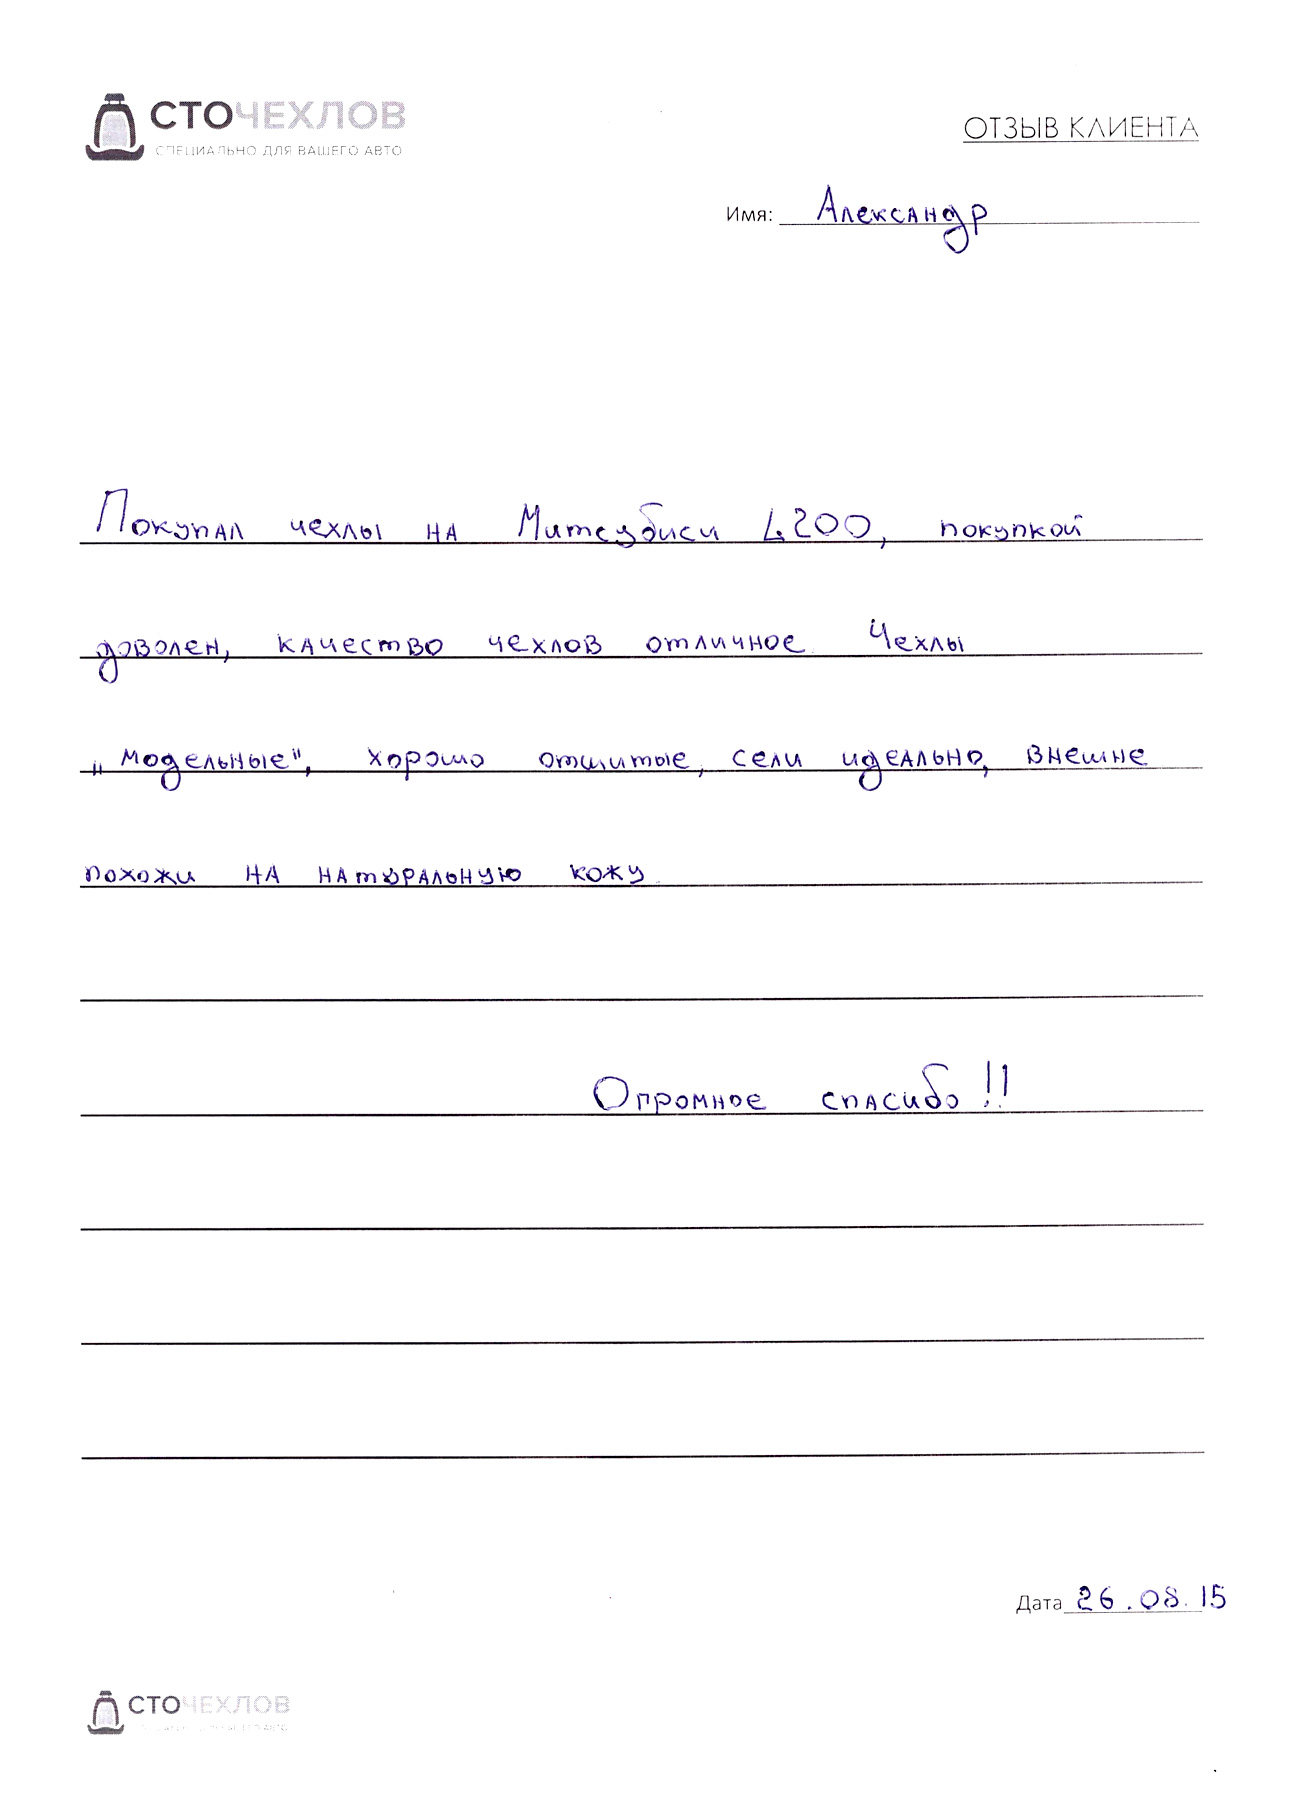 СТОЧЕХЛОВ
СПЕЦИАЛЬНО ДЛЯ ВАШЕГО АВТО
ОТЗЫВ КЛИЕНТА
Имя: Александр
Покупал чехлы на Митсубиси L200, покупкой
доволен, качество чехлов отличное. Чехлы
„модельные", хорошо отшитые, сели идеально, внешне
похожи на натуральную кожу.
Огромное спасибо!!
Дата 26.08.15
СТОЧЕХЛОВ
СПЕЦИАЛЬНО ДЛЯ ВАШЕГО АВТО